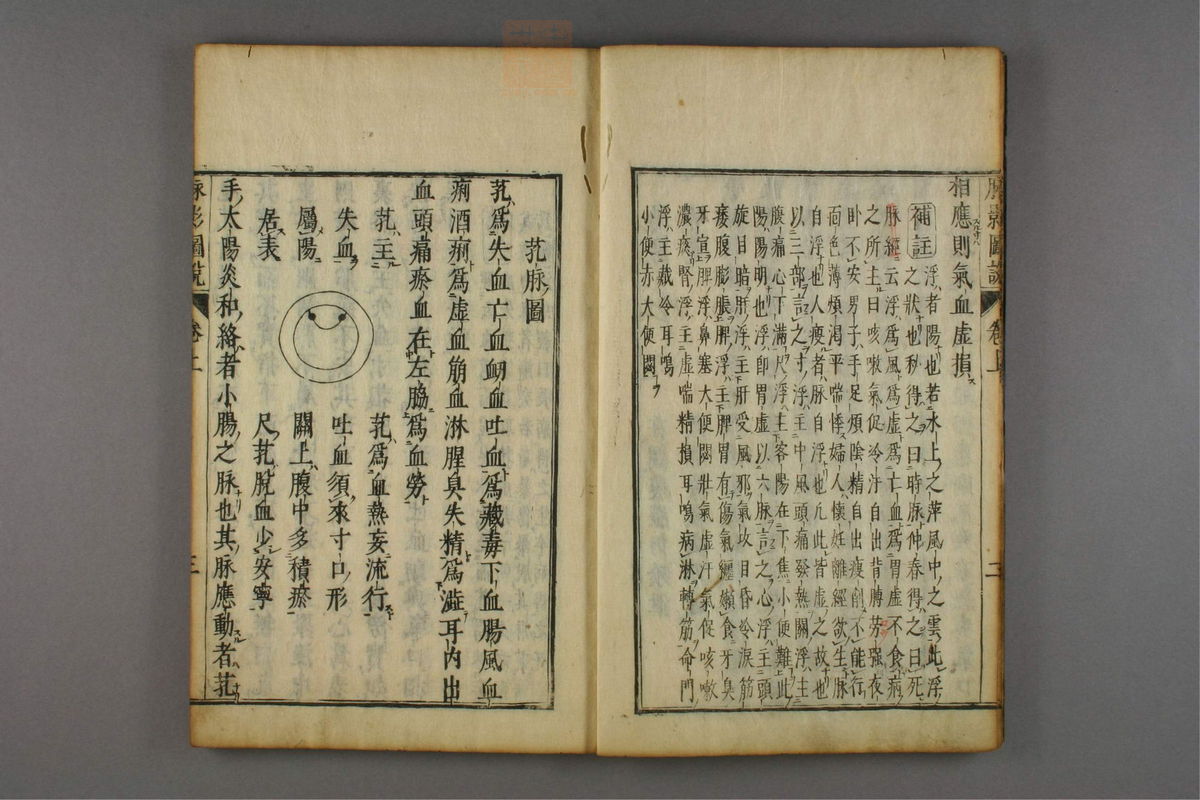 脉影圖說 卷上 二
相應則氣血虛損
補註
浮者陽也若水上之萍風中之雲此浮
之狀也秒得之曰時脉仲春得之曰死
脉經云浮爲風爲虛爲亡血爲胃虛不食病
之所主曰咳嗽氣促冷汗自出背膊勞强夜
卧不安男子手足煩陰精自出瘦削不能行
面色薄煩渴平喘悸婦人懷妊離經欲生脉
自浮也人瘦者脉自浮也凢此皆虛之故也
以三部言之寸浮主中風頭痛發熱關浮主
腹痛心下滿尺浮主客陽在下焦小便難此
陽陽明也浮即胃虛以六脉言之心浮主頭
旋目暗肝浮主肝受風邪氣攻目昏冷淚筋
痿腹膨脹脾浮主脾胃有傷氣纏嬾食牙臭
牙宣脾浮鼻塞大便閟壯氣虛汗氣促咳嗽
濃痰腎浮主虛喘精損耳鳴病淋轉筋命門
浮主藏冷耳鳴
小便赤大便閟
芤脉圖
芤爲失血亡血衂血吐血爲藏毒下血腸風血
痢酒痢爲虛血筋血淋腥臭失精爲澁耳內出
血頭痛瘀血在左脇爲血勞
芤主
失血
屬陽
居表
芤爲血熱妄流行
吐血須來寸口形
關上腹中多積瘀
尺芤脫血少安寧
手太陽炎和絡者小腸之脉也其脉應動者芤
脉影圖說 卷上 三